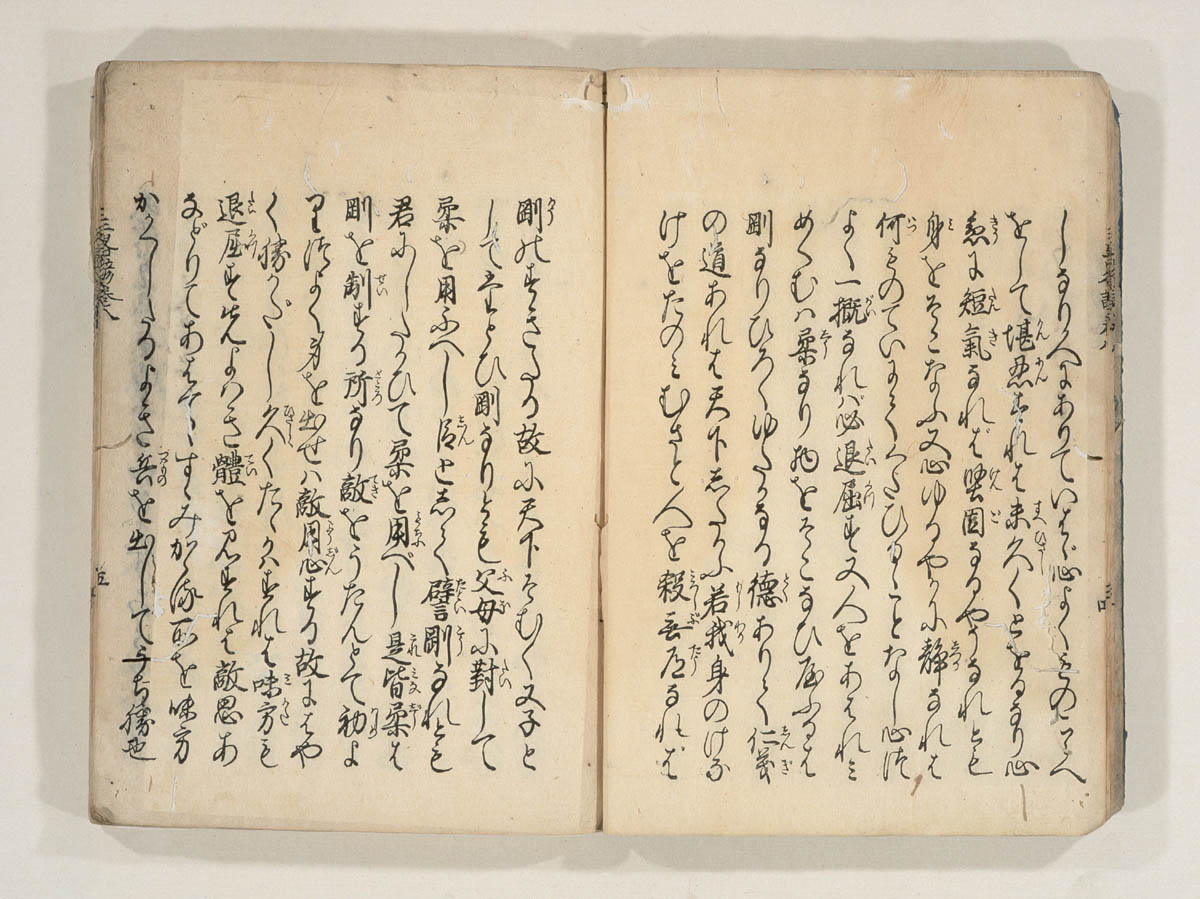 しなり人にありていはゞ心よくものこらへ
をして堪忍すれは末久くとをるなり心
急に短氣なれば堅固なるやうなれとも
身をそこなふ又心ゆるやかに静なれは
何ものていにもくたひるゝことなし心つ
よく一概なれば必退屈す又人をあはれみ
めくむは柔なり物をそこなひ破るは
剛なりひろくゆたかなる徳ありて仁義
の道あれは天下したかふ若我身のけな
けをたのみむさと人を殺無道なれば
剛のすきたる故に天下そむく又子と
して
剛なりとも父母に對して
柔を用ふへし臣としてく譬剛なれとも
君にしたかひて柔を用べし是皆柔は
剛を制する所なり敵をうたんとて初よ
りつよく身を出せは敵用心する故にはや
く勝かたし久くたゝかはすれは味方も
退屈す先よはき體を見すれは敵思あ
などりてあはてゝすゝみかゝる所を味方
かくしたるよき兵を出して
勝也